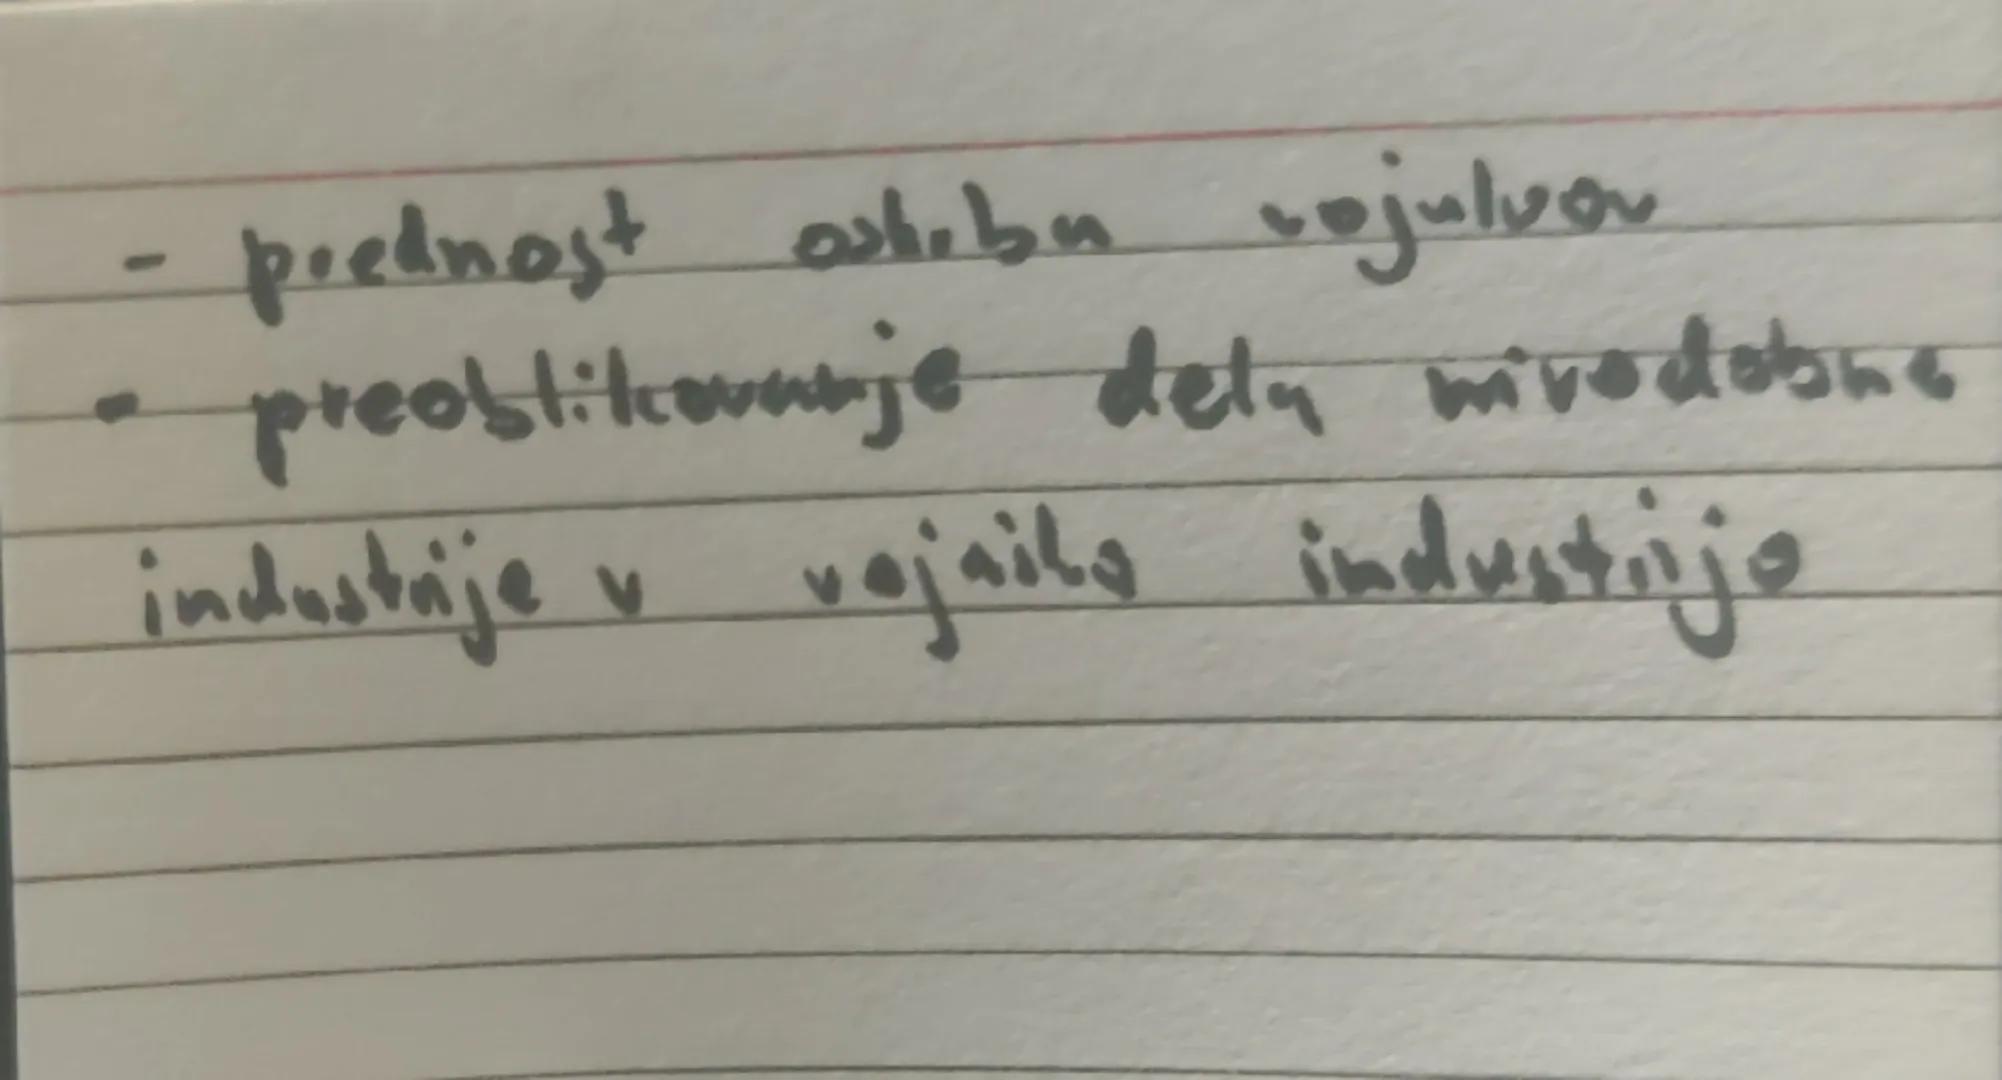 - prednost oskrba vojakov
- preoblikovanje dela mirodobne
industrije v vojaško industrijo